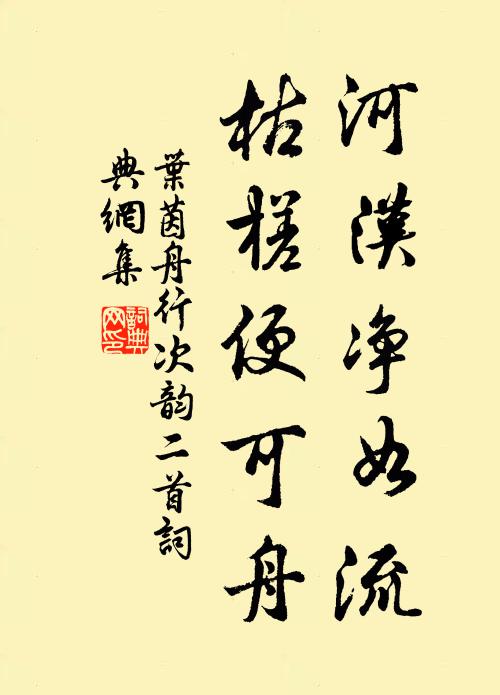 河漢净如流
枯槎便可舟
葉茵舟行次韵二首詞
典網集
詞典
网印